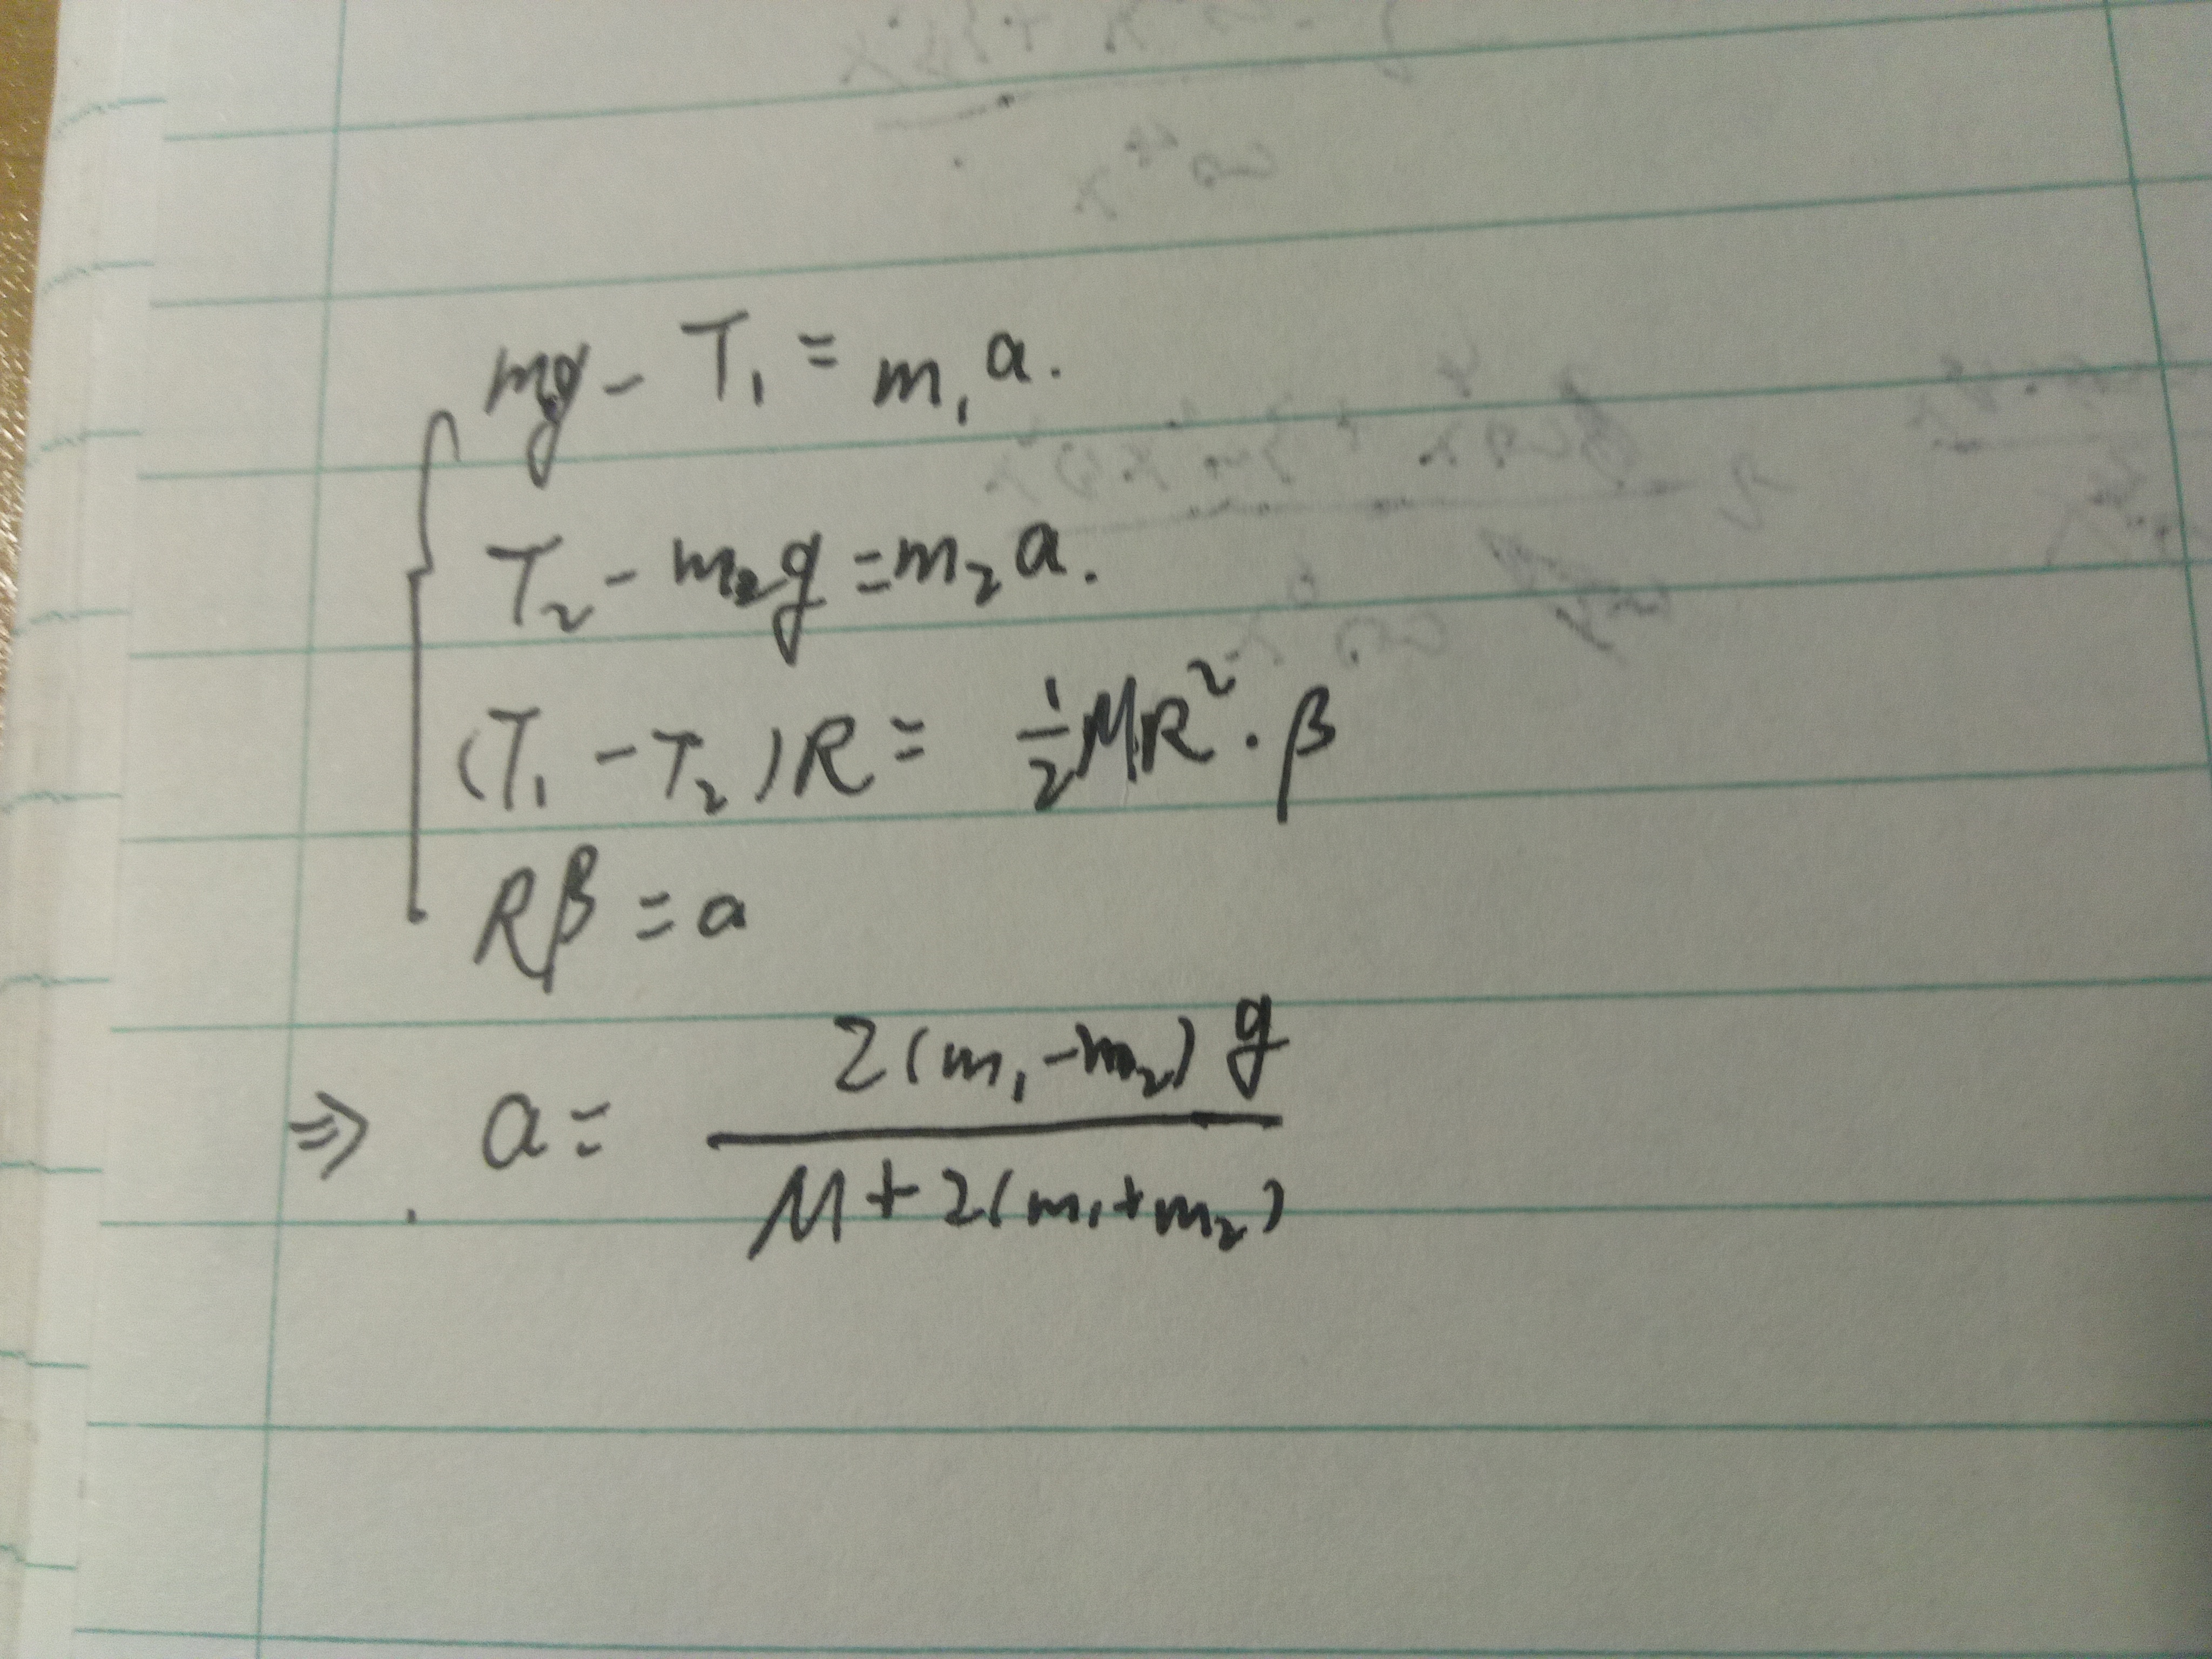 mg - T₁ = m₁a.
T₂ - m₂g = m₂a.
(T₁ - T₂)R = ½MR²·β
Rβ = a
⇒ a = 2(m₁-m₂)g / M+2(m₁+m₂)